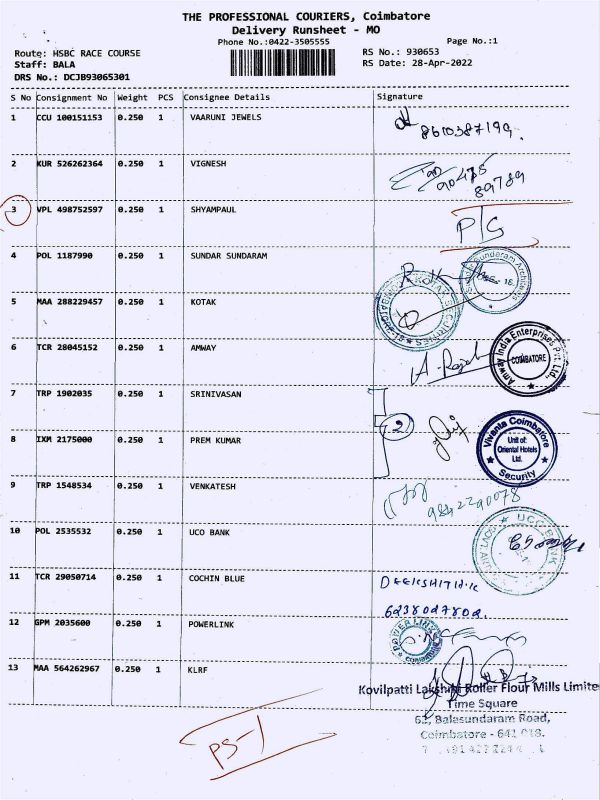 THE PROFESSIONAL COURIERS, Coimbatore
Delivery Runsheet - MO
Phone No.:0422-3505555
Page No.:1
Route: HSBC RACE COURSE
RS No.: 930653
Staff: BALA
RS Date: 28-Apr-2022
DRS No.: DCJB93065301
S No Consignment No Weight PCS Consignee Details Signature
1 CCU 100151153 0.250 1 VAARUNI JEWELS
8610387199.
2 KUR 526262364 0.250 1 VIGNESH
90475
89789
3 VPL 498752597 0.250 1 SHYAMPAUL
P/S
4 POL 1187990 0.250 1 SUNDAR SUNDARAM
Sundaram Architects
5 MAA 288229457 0.250 1 KOTAK
KOTAK SECURITIES
6 TCR 28045152 0.250 1 AMWAY
Amway India Enterprises Pvt. Ltd.
COIMBATORE
7 TRP 1902035 0.250 1 SRINIVASAN
2
8 IXM 2175000 0.250 1 PREM KUMAR
Vivanta Coimbatore
Unit of:
Oriental Hotels
Ltd.
Security
9 TRP 1548534 0.250 1 VENKATESH
9842290078
10 POL 2535532 0.250 1 UCO BANK
UCO BANK
11 TCR 29050714 0.250 1 COCHIN BLUE
DEEKSHITH.K
6238027802.
12 GPM 2035600 0.250 1 POWERLINK
POWER LINK
COIMBATORE
13 MAA 564262967 0.250 1 KLRF
Kovilpatti Lakshmi Roller Flour Mills Limite
Time Square
62, Balasundaram Road,
Coimbatore - 641 018.
PS-1